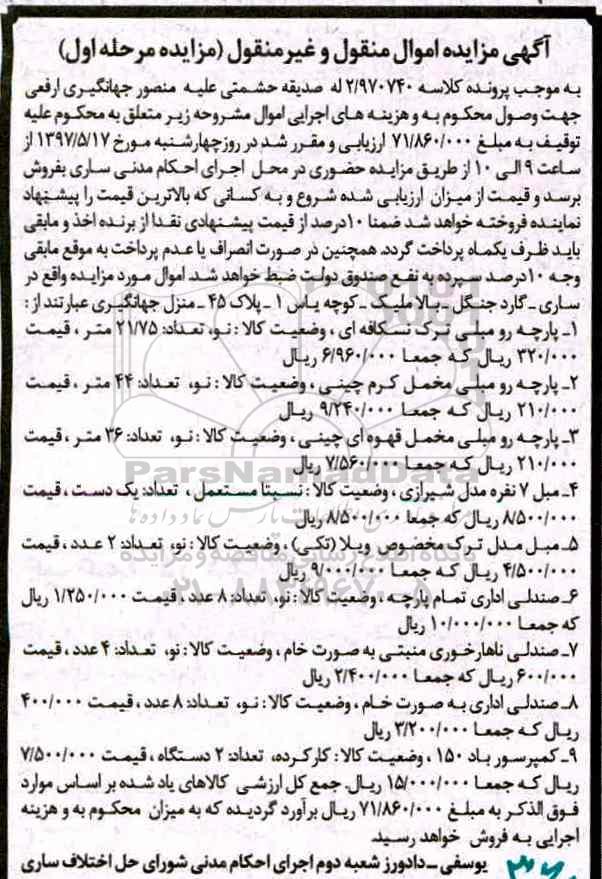 آگهی مزایده اموال منقول و غیرمنقول (مزایده مرحله اول)
به موجب پرونده کلاسه ۲/۹۷۰۷۴۰ له صدیقه حشمتی علیه منصور جهانگیری ارفعی
جهت وصول محکوم به و هزینه های اجرایی اموال مشروحه زیر متعلق به محکوم علیه
توقیف به مبلغ ۷۱/۸۶۰/۰۰۰ ارزیابی و مقرر شد در روز چهارشنبه مورخ ۱۳۹۷/۵/۱۷ از
ساعت ۹ الی ۱۰ از طریق مزایده حضوری در محل اجرای احکام مدنی ساری بفروش
برسد و قیمت از میزان ارزیابی شده شروع و به کسانی که بالاترین قیمت را پیشنهاد
نماینده فروخته خواهد شد ضمنا ۱۰درصد از قیمت پیشنهادی نقدا از برنده اخذ و مابقی
باید ظرف یکماه پرداخت گردد. همچنین در صورت انصراف یا عدم پرداخت به موقع مابقی
وجه ۱۰درصد سپرده به نفع صندوق دولت ضبط خواهد شد. اموال مورد مزایده واقع در
ساری ـ گارد جنگل ـ بالا ملیک ـ کوچه یاس ۱ ـ پلاک ۴۵ ـ منزل جهانگیری عبارتند از :
۱ـ پارچه رو مبلی ترک نسکافه ای ، وضعیت کالا : نو، تعداد: ۲۱/۷۵ متر ، قیمت
۳۲۰/۰۰۰ ریال که جمعا ۶/۹۶۰/۰۰۰ ریال
۲ـ پارچه رو مبلی مخمل کرم چینی ، وضعیت کالا : نو، تعداد: ۴۴ متر ، قیمت
۲۱۰/۰۰۰ ریال که جمعا ۹/۲۴۰/۰۰۰ ریال
۳ـ پارچه رو مبلی مخمل قهوه ای چینی ، وضعیت کالا : نو، تعداد: ۳۶ متر ، قیمت
۲۱۰/۰۰۰ ریال که جمعا ۷/۵۶۰/۰۰۰ ریال
۴ـ مبل ۷ نفره مدل شیرازی ، وضعیت کالا : نسبتا مستعمل ، تعداد: یک دست ، قیمت
۸/۵۰۰/۰۰۰ ریال که جمعا ۸/۵۰۰/۰۰۰ ریال
۵ـ مبل مدل ترک مخصوص ویلا (تکی) ، وضعیت کالا : نو، تعداد: ۲ عدد ، قیمت
۴/۵۰۰/۰۰۰ ریال که جمعا ۹/۰۰۰/۰۰۰ ریال
۶ـ صندلی اداری تمام پارچه ، وضعیت کالا : نو، تعداد: ۸ عدد ، قیمت ۱/۲۵۰/۰۰۰ ریال
که جمعا ۱۰/۰۰۰/۰۰۰ ریال
۷ـ صندلی ناهارخوری منبتی به صورت خام ، وضعیت کالا : نو، تعداد: ۴ عدد ، قیمت
۶۰۰/۰۰۰ ریال که جمعا ۲/۴۰۰/۰۰۰ ریال
۸ـ صندلی اداری به صورت خام ، وضعیت کالا : نو، تعداد: ۸ عدد ، قیمت ۴۰۰/۰۰۰
ریال که جمعا ۳/۲۰۰/۰۰۰ ریال
۹ـ کمپرسور باد ۱۵۰ ، وضعیت کالا : کارکرده، تعداد: ۲ دستگاه ، قیمت ۷/۵۰۰/۰۰۰
ریال که جمعا ۱۵/۰۰۰/۰۰۰ ریال. جمع کل ارزشی کالاهای یاد شده بر اساس موارد
فوق الذکر به مبلغ ۷۱/۸۶۰/۰۰۰ ریال برآورد گردیده که به میزان محکوم به و هزینه
اجرایی به فروش خواهد رسید.
یوسفی ـ دادورز شعبه دوم اجرای احکام مدنی شورای حل اختلاف ساری
ParsNamadData